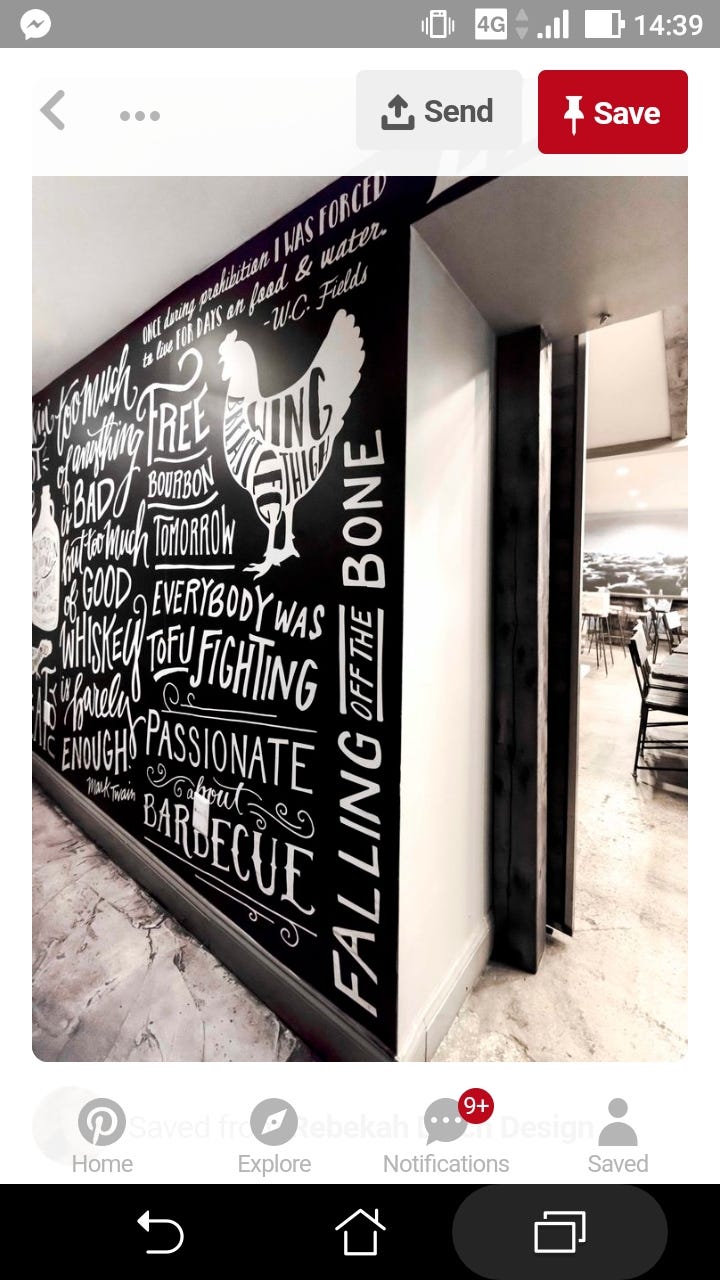 4G
14:39
Send
Save
ONCE during prohibition I WAS FORCED
to live FOR DAYS on food & water.
-W.C. Fields
too much
of anything
is BAD
but too much
of GOOD
WHISKEY
is barely
ENOUGH
Mark Twain
FREE
BOURBON
TOMORROW
WING
THIGH
LEG
EVERYBODY WAS
TOFU FIGHTING
PASSIONATE
about
BARBECUE
FALLING OFF THE BONE
Saved from Rebekah Design
9+
Home
Explore
Notifications
Saved